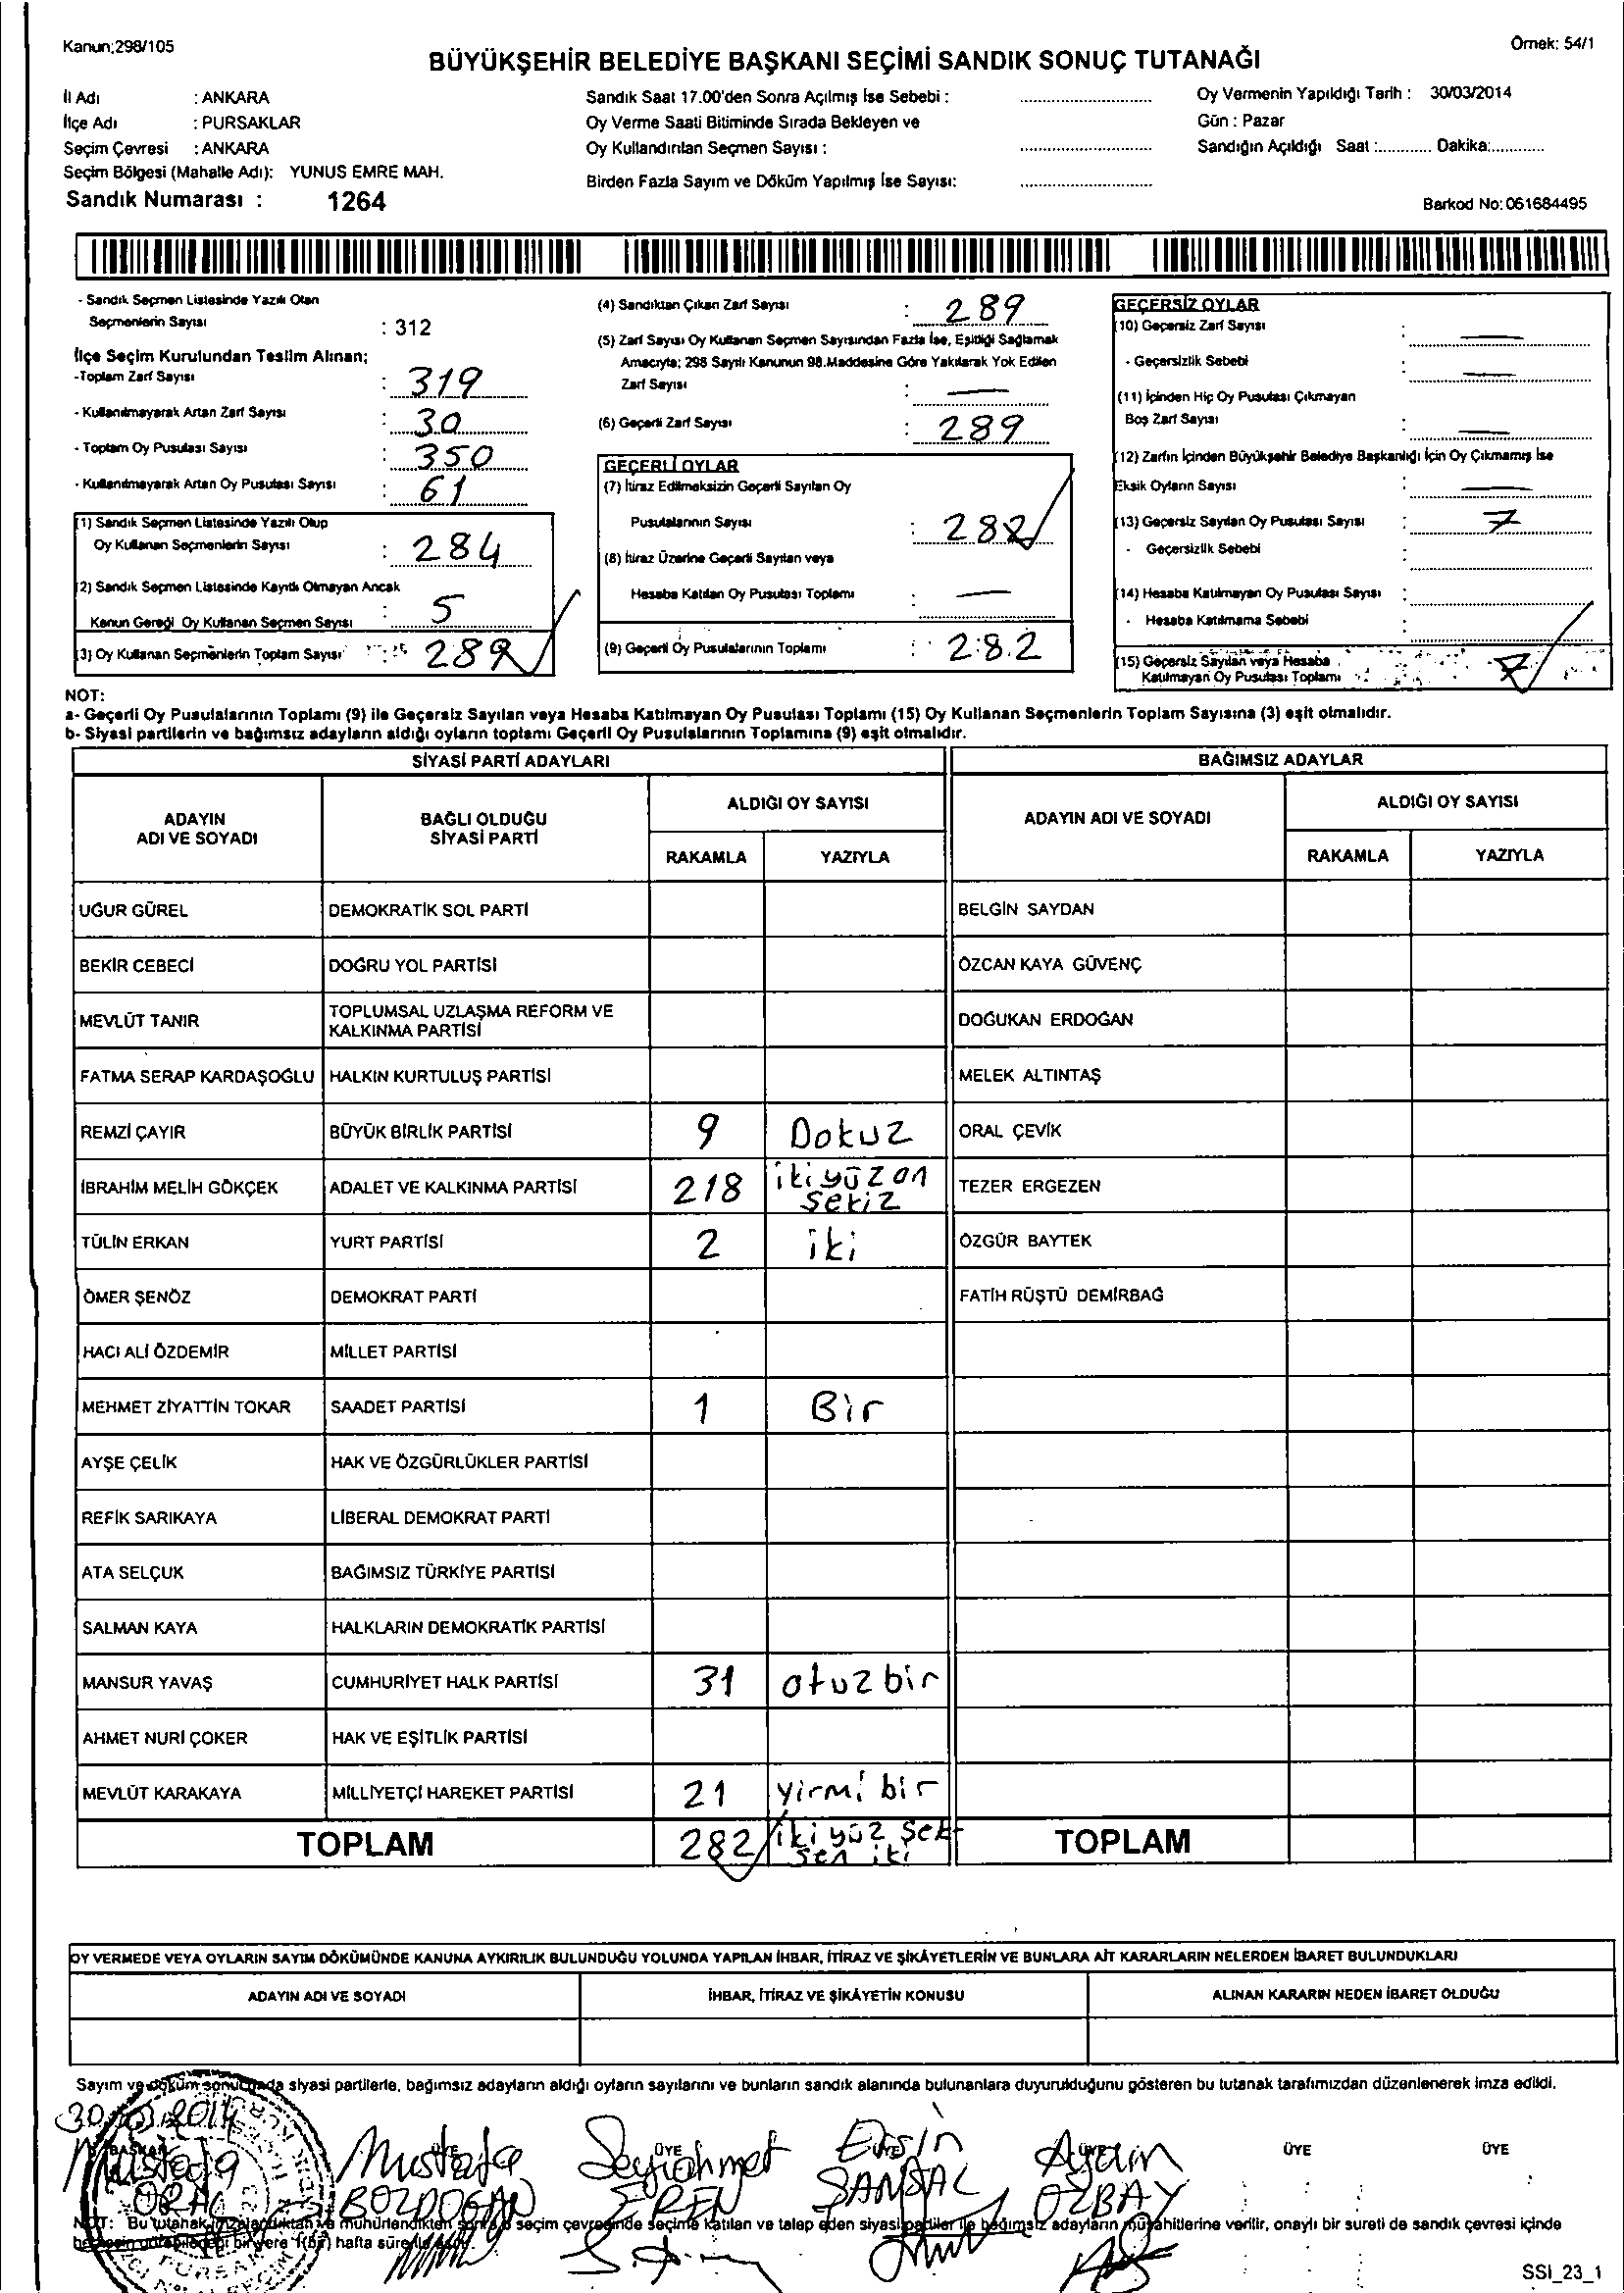 Kanun;298/105
Örnek: 54/1
BÜYÜKŞEHİR BELEDİYE BAŞKANI SEÇİMİ SANDIK SONUÇ TUTANAĞI
İl Adı : ANKARA
İlçe Adı : PURSAKLAR
Seçim Çevresi : ANKARA
Seçim Bölgesi (Mahalle Adı): YUNUS EMRE MAH.
Sandık Numarası : 1264
Sandık Saat 17.00'den Sonra Açılmış İse Sebebi :
Oy Verme Saati Bitiminde Sırada Bekleyen ve
Oy Kullandırılan Seçmen Sayısı :
Birden Fazla Sayım ve Döküm Yapılmış İse Sayısı:
Oy Vermenin Yapıldığı Tarih : 30/03/2014
Gün : Pazar
Sandığın Açıldığı Saat :............ Dakika:............
Barkod No: 061684495
- Sandık Seçmen Listesinde Yazılı Olan
Seçmenlerin Sayısı : 312
İlçe Seçim Kurulundan Teslim Alınan:
-Toplam Zarf Sayısı : 319
- Kullanılmayarak Artan Zarf Sayısı : 30
- Toplam Oy Pusulası Sayısı : 350
- Kullanılmayarak Artan Oy Pusulası Sayısı : 61
(1) Sandık Seçmen Listesinde Yazılı Olup
Oy Kullanan Seçmenlerin Sayısı : 284
(2) Sandık Seçmen Listesinde Kayıtlı Olmayan Ancak
Kanun Gereği Oy Kullanan Seçmen Sayısı : 5
(3) Oy Kullanan Seçmenlerin Toplam Sayısı 289
(4) Sandıktan Çıkan Zarf Sayısı : 289
(5) Zarf Sayısı Oy Kullanan Seçmen Sayısından Fazla İse, Eşitliği Sağlamak
Amacıyla; 298 Sayılı Kanunun 98.Maddesine Göre Yakılarak Yok Edilen
Zarf Sayısı : —
(6) Geçerli Zarf Sayısı : 289
GEÇERLİ OYLAR
(7) İtiraz Edilmeksizin Geçerli Sayılan Oy
Pusulalarının Sayısı : 282
(8) İtiraz Üzerine Geçerli Sayılan veya
Hesaba Katılan Oy Pusulası Toplamı : —
(9) Geçerli Oy Pusulalarının Toplamı : 282
GEÇERSİZ OYLAR
(10) Geçersiz Zarf Sayısı : —
- Geçersizlik Sebebi : —
(11) İçinden Hiç Oy Pusulası Çıkmayan
Boş Zarf Sayısı : —
(12) Zarfın İçinden Büyükşehir Belediye Başkanlığı İçin Oy Çıkmamış İse
Eksik Oyların Sayısı : —
(13) Geçersiz Sayılan Oy Pusulası Sayısı : 7
- Geçersizlik Sebebi :
(14) Hesaba Katılmayan Oy Pusulası Sayısı :
- Hesaba Katılmama Sebebi :
(15) Geçersiz Sayılan veya Hesaba
Katılmayan Oy Pusulası Toplamı 7
NOT:
a- Geçerli Oy Pusulalarının Toplamı (9) ile Geçersiz Sayılan veya Hesaba Katılmayan Oy Pusulası Toplamı (15) Oy Kullanan Seçmenlerin Toplam Sayısına (3) eşit olmalıdır.
b- Siyasi partilerin ve bağımsız adayların aldığı oyların toplamı Geçerli Oy Pusulalarının Toplamına (9) eşit olmalıdır.
SİYASİ PARTİ ADAYLARI
BAĞIMSIZ ADAYLAR
ADAYIN ADI VE SOYADI
BAĞLI OLDUĞU SİYASİ PARTİ
ALDIĞI OY SAYISI
RAKAMLA YAZIYLA
ADAYIN ADI VE SOYADI
ALDIĞI OY SAYISI
RAKAMLA YAZIYLA
UĞUR GÜREL DEMOKRATİK SOL PARTİ BELGİN SAYDAN
BEKİR CEBECİ DOĞRU YOL PARTİSİ ÖZCAN KAYA GÜVENÇ
MEVLÜT TANIR TOPLUMSAL UZLAŞMA REFORM VE KALKINMA PARTİSİ DOĞUKAN ERDOĞAN
FATMA SERAP KARDAŞOĞLU HALKIN KURTULUŞ PARTİSİ MELEK ALTINTAŞ
REMZİ ÇAYIR BÜYÜK BİRLİK PARTİSİ 9 Dokuz ORAL ÇEVİK
İBRAHİM MELİH GÖKÇEK ADALET VE KALKINMA PARTİSİ 218 ikiyüzon sekiz TEZER ERGEZEN
TÜLİN ERKAN YURT PARTİSİ 2 iki ÖZGÜR BAYTEK
ÖMER ŞENÖZ DEMOKRAT PARTİ FATİH RÜŞTÜ DEMİRBAĞ
HACI ALİ ÖZDEMİR MİLLET PARTİSİ
MEHMET ZİYATTİN TOKAR SAADET PARTİSİ 1 Bir
AYŞE ÇELİK HAK VE ÖZGÜRLÜKLER PARTİSİ
REFİK SARIKAYA LİBERAL DEMOKRAT PARTİ
ATA SELÇUK BAĞIMSIZ TÜRKİYE PARTİSİ
SALMAN KAYA HALKLARIN DEMOKRATİK PARTİSİ
MANSUR YAVAŞ CUMHURİYET HALK PARTİSİ 31 otuzbir
AHMET NURİ ÇOKER HAK VE EŞİTLİK PARTİSİ
MEVLÜT KARAKAYA MİLLİYETÇİ HAREKET PARTİSİ 21 yirmi bir
TOPLAM 282 ikiyüz sek- sen iki TOPLAM
OY VERMEDE VEYA OYLARIN SAYIM DÖKÜMÜNDE KANUNA AYKIRILIK BULUNDUĞU YOLUNDA YAPILAN İHBAR, İTİRAZ VE ŞİKÂYETLERİN VE BUNLARA AİT KARARLARIN NELERDEN İBARET BULUNDUKLARI
ADAYIN ADI VE SOYADI İHBAR, İTİRAZ VE ŞİKÂYETİN KONUSU ALINAN KARARIN NEDEN İBARET OLDUĞU
Sayım ve döküm sonucunda siyasi partilerle, bağımsız adayların aldığı oyların sayılarını ve bunların sandık alanında bulunanlara duyurulduğunu gösteren bu tutanak tarafımızdan düzenlenerek imza edildi.
30.03.2014
BAŞKAN ÜYE ÜYE ÜYE ÜYE ÜYE ÜYE
Mustafa ORAL
Mustafa BOZDOĞAN
Seyitahmet EREN
Ersin ŞANSAL
Aydın ÖZBAY
NOT: Bu tutanak imzalandıktan ve mühürlendikten sonra o seçim çevresinde seçime katılan ve talep eden siyasi partiler ile bağımsız adayların müşahitlerine verilir, onaylı bir sureti de sandık çevresi içinde
herkesin görebileceği bir yere 1(bir) hafta süreyle asılır.
SSI_23_1